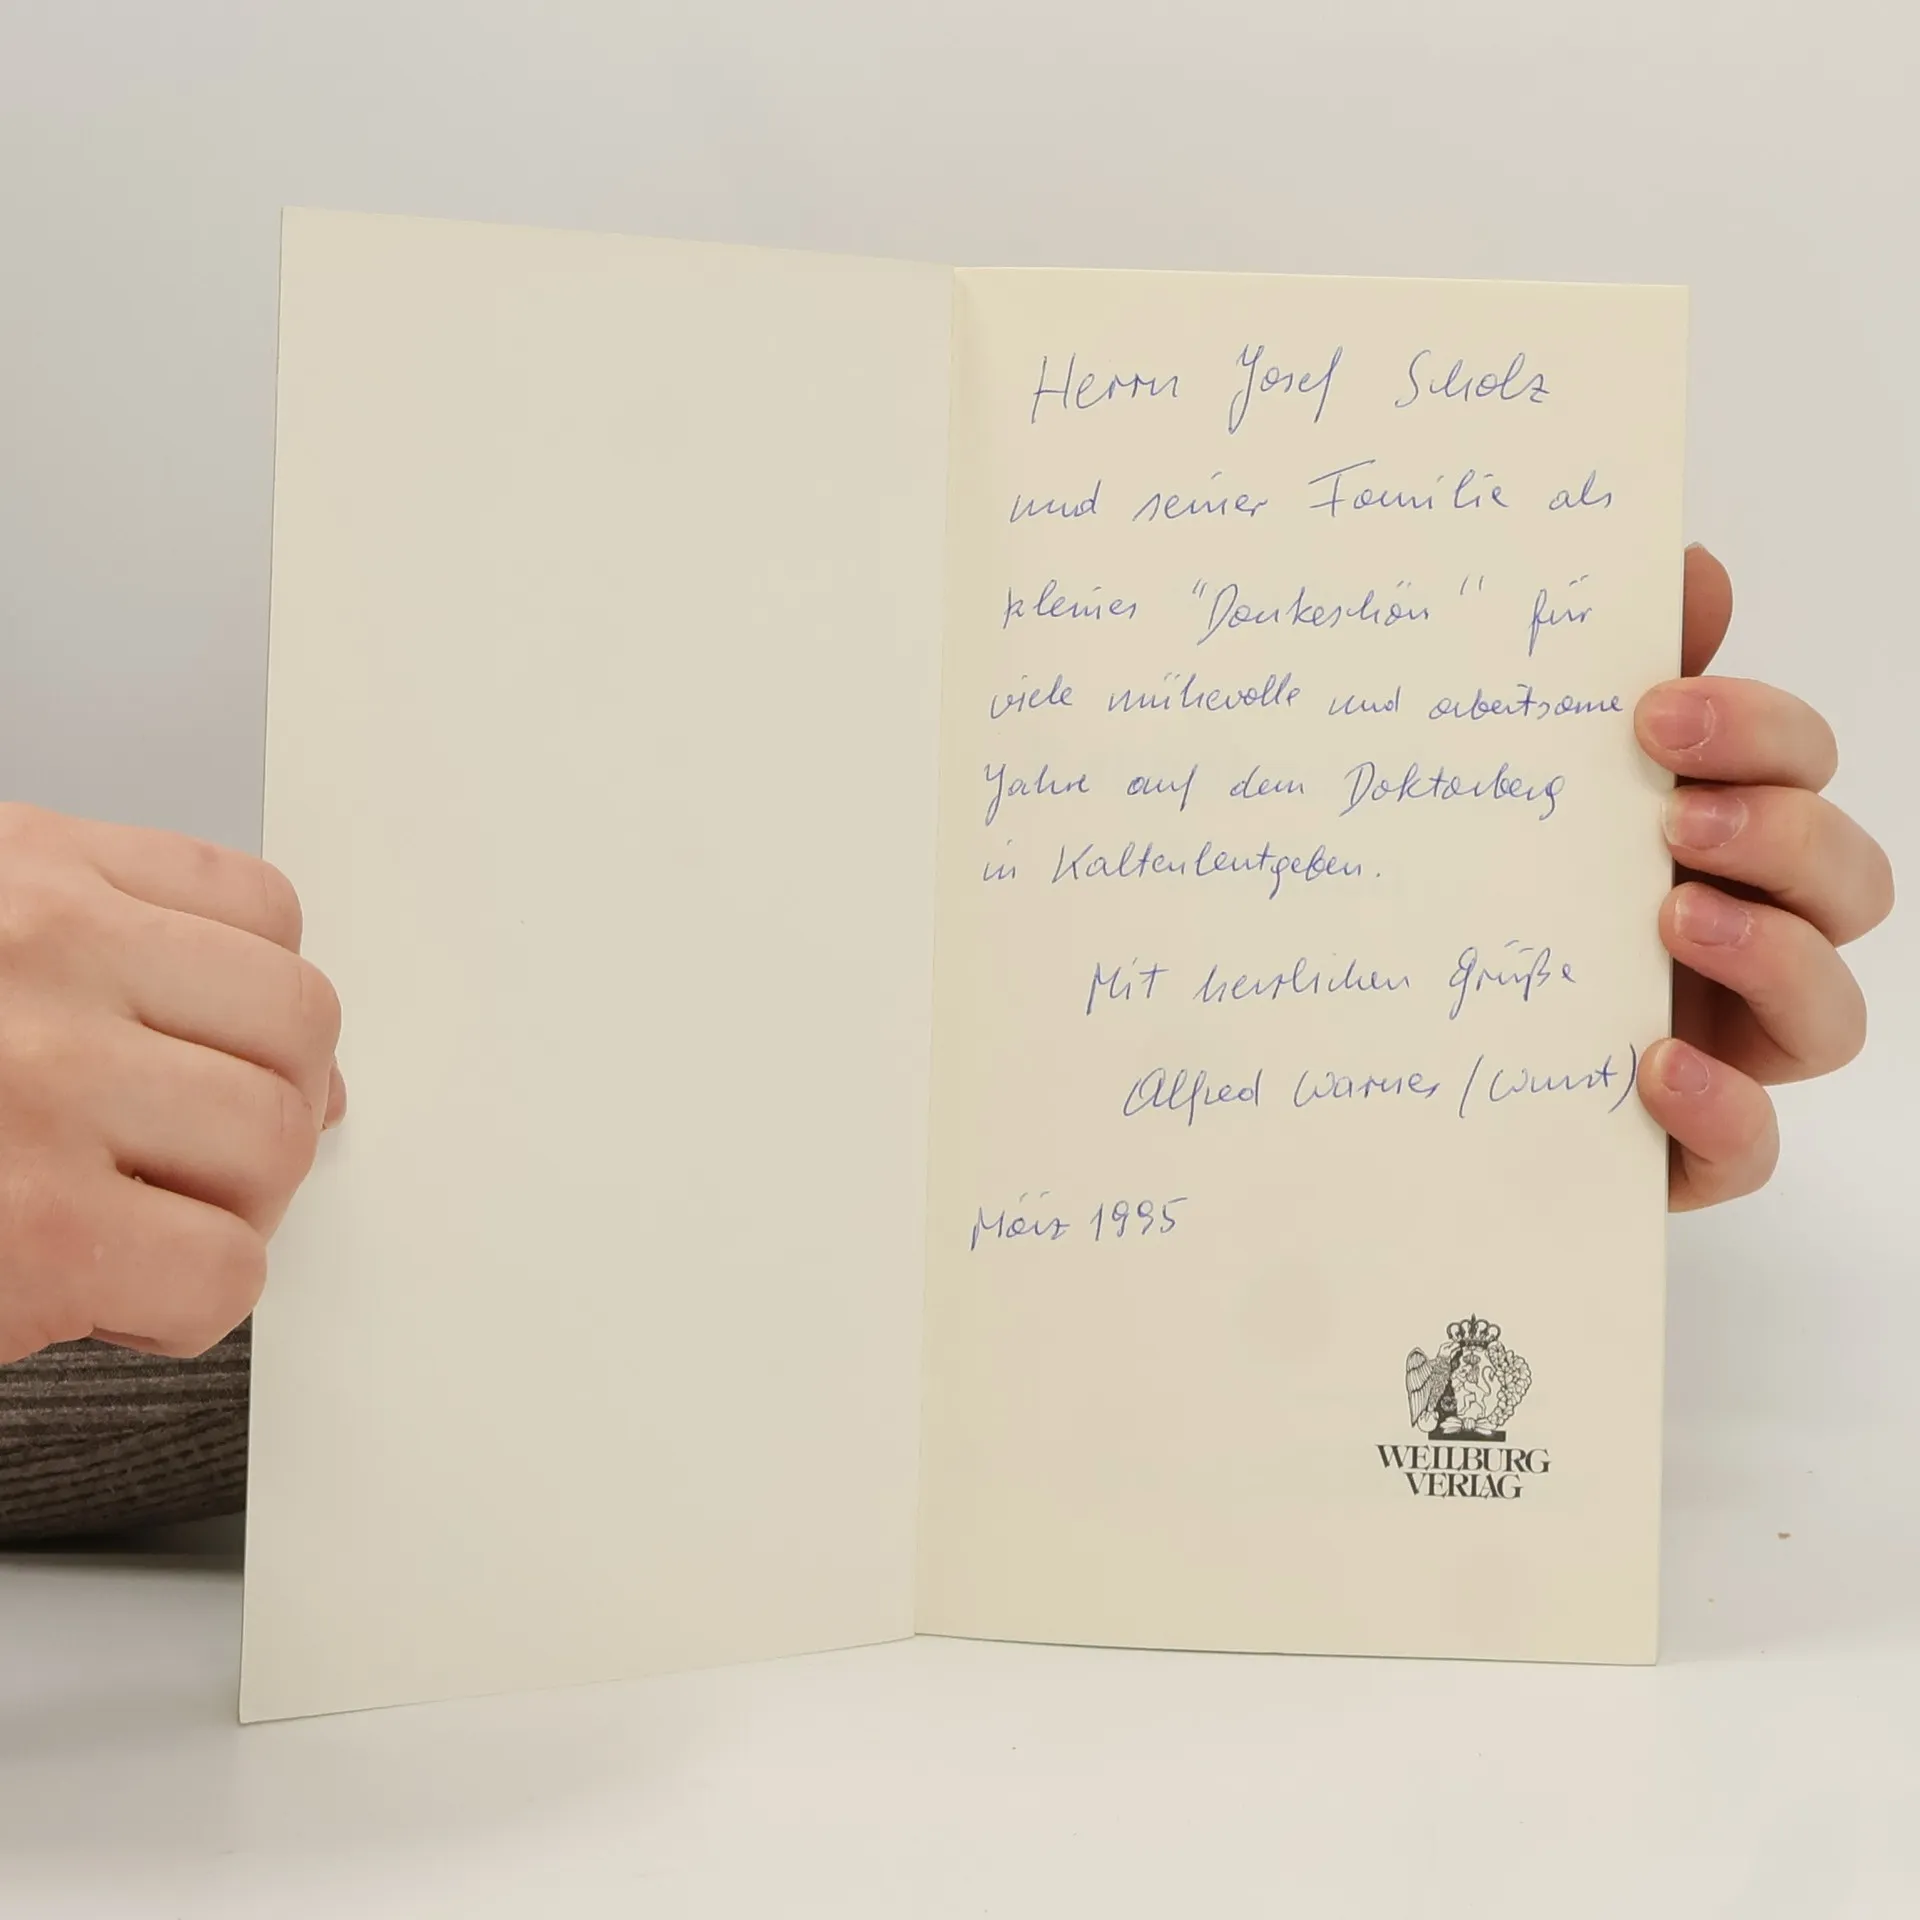 Herrn Josef Scholz
und seiner Familie als
kleines "Dankeschön" für
viele mühevolle und arbeitsame
Jahre auf dem Doktorberg
in Kaltenleutgeben.
Mit herzlichen Grüße
Alfred Warner (Wurst)
März 1995
WEILBURG
VERLAG